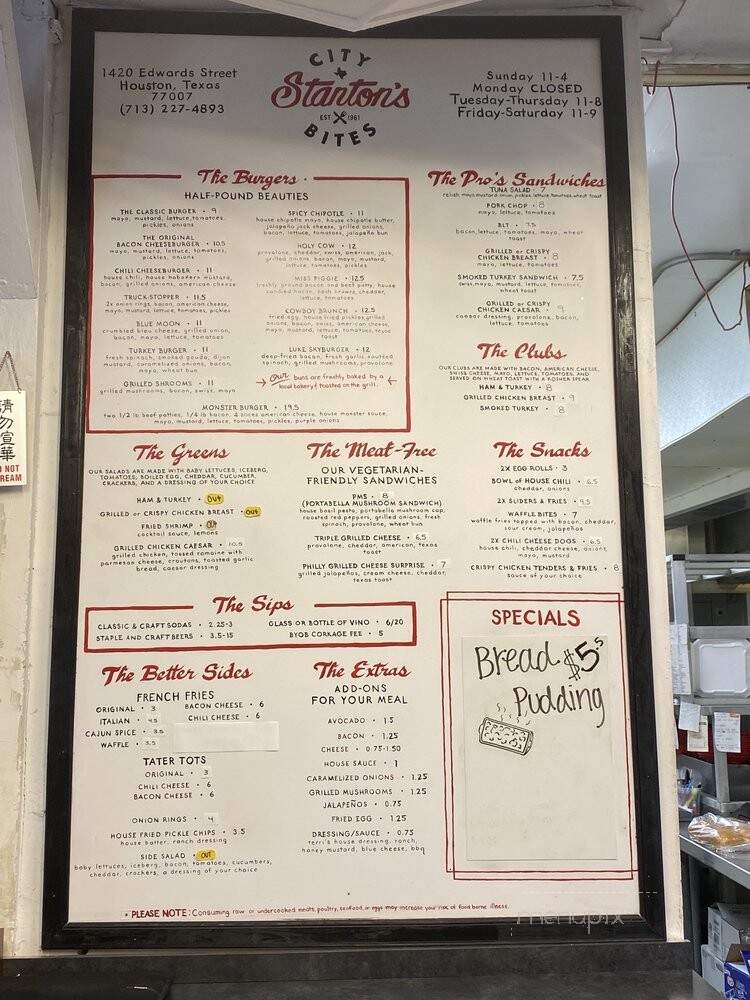 1420 Edwards Street
Houston, Texas
77007
(713) 227-4893
CITY
Stanton's
EST 1961
BITES
Sunday 11-4
Monday CLOSED
Tuesday-Thursday 11-8
Friday-Saturday 11-9
The Burgers
HALF-POUND BEAUTIES
THE CLASSIC BURGER • 9
mayo, mustard, lettuce, tomatoes,
pickles, onions
THE ORIGINAL
BACON CHEESEBURGER • 10.5
mayo, mustard, lettuce, tomatoes,
pickles, onions
CHILI CHEESEBURGER • 11
house chili, house habañero mustard,
bacon, grilled onions, american cheese
TRUCK-STOPPER • 11.5
2x onion rings, bacon, american cheese,
mayo, mustard, lettuce, tomatoes, pickles
BLUE MOON • 11
crumbled bleu cheese, grilled onion,
bacon, mayo, lettuce, tomatoes
TURKEY BURGER • 11
fresh spinach, smoked gouda, dijon
mustard, caramelized onions, bacon,
mayo, wheat bun
GRILLED SHROOMS • 11
grilled mushrooms, bacon, swiss, mayo
SPICY CHIPOTLE • 11
house chipotle mayo, house chipotle butter,
jalapeño jack cheese, grilled onions,
bacon, lettuce, tomatoes, jalapeño bun
HOLY COW • 12
provolone, cheddar, swiss, american, jack,
grilled onions, bacon, mayo, mustard,
lettuce, tomatoes, pickles
MISS PIGGIE • 12.5
freshly ground bacon and beef patty, house
candied bacon, hash browns, cheddar,
lettuce, tomatoes
COWBOY BRUNCH • 12.5
fried egg, house fried pickles, grilled
onions, bacon, swiss, american cheese,
mayo, mustard, lettuce, tomatoes, texas
toast
LUKE SKYBURGER • 12
deep-fried bacon, fresh garlic, sautéed
spinach, grilled mushrooms, provolone
our buns are freshly baked by a
local bakery & toasted on the grill.
MONSTER BURGER • 19.5
two 1/2 lb beef patties, 1/4 lb bacon, 4 slices american cheese, house monster sauce,
mayo, mustard, lettuce, tomatoes, pickles, purple onions
The Pro's Sandwiches
TUNA SALAD • 7
relish, mayo, mustard, onion, pickles, lettuce, tomatoes, wheat toast
PORK CHOP • 8
mayo, lettuce, tomatoes
BLT • 7.5
bacon, lettuce, tomatoes, mayo, wheat
toast
GRILLED or CRISPY
CHICKEN BREAST • 8
mayo, lettuce, tomatoes
SMOKED TURKEY SANDWICH • 7.5
swiss, mayo, mustard, lettuce, tomatoes,
wheat toast
GRILLED or CRISPY
CHICKEN CAESAR • 9
caesar dressing, provolone, bacon,
lettuce, tomatoes
The Clubs
OUR CLUBS ARE MADE WITH BACON, AMERICAN CHEESE,
SWISS CHEESE, MAYO, LETTUCE, TOMATOES, AND
SERVED ON WHEAT TOAST WITH A KOSHER SPEAR
HAM & TURKEY • 8
GRILLED CHICKEN BREAST • 9
SMOKED TURKEY • 8
The Greens
OUR SALADS ARE MADE WITH BABY LETTUCES, ICEBERG,
TOMATOES, BOILED EGG, CHEDDAR, CUCUMBER,
CRACKERS, AND A DRESSING OF YOUR CHOICE
HAM & TURKEY • OUT
GRILLED or CRISPY CHICKEN BREAST • OUT
FRIED SHRIMP • OUT
cocktail sauce, lemons
GRILLED CHICKEN CAESAR • 10.5
grilled chicken, tossed romaine with
parmesan cheese, croutons, toasted garlic
bread, caesar dressing
The Meat-Free
OUR VEGETARIAN-
FRIENDLY SANDWICHES
PMS • 8
(PORTABELLA MUSHROOM SANDWICH)
house basil pesto, portabella mushroom cap,
roasted red peppers, grilled onions, fresh
spinach, provolone, wheat bun
TRIPLE GRILLED CHEESE • 6.5
provolone, cheddar, american, texas
toast
PHILLY GRILLED CHEESE SURPRISE • 7
grilled jalapeños, cream cheese, cheddar,
texas toast
The Snacks
2X EGG ROLLS • 3
BOWL of HOUSE CHILI • 6.5
cheddar, onions
2X SLIDERS & FRIES • 9.5
WAFFLE BITES • 7
waffle fries topped with bacon, cheddar,
sour cream, jalapeños
2X CHILI CHEESE DOGS • 6.5
house chili, cheddar cheese, onions,
mayo, mustard
CRISPY CHICKEN TENDERS & FRIES • 8
sauce of your choice
The Sips
CLASSIC & CRAFT SODAS • 2.25-3
STAPLE AND CRAFT BEERS • 3.5-15
GLASS OR BOTTLE OF VINO • 6/20
BYOB CORKAGE FEE • 5
The Better Sides
FRENCH FRIES
ORIGINAL • 3
ITALIAN • 4.5
CAJUN SPICE • 3.5
WAFFLE • 3.5
BACON CHEESE • 6
CHILI CHEESE • 6
TATER TOTS
ORIGINAL • 3
CHILI CHEESE • 6
BACON CHEESE • 6
ONION RINGS • 4
HOUSE FRIED PICKLE CHIPS • 3.5
house batter, ranch dressing
SIDE SALAD • OUT
baby lettuces, iceberg, bacon, tomatoes, cucumbers,
cheddar, crackers, a dressing of your choice
The Extras
ADD-ONS
FOR YOUR MEAL
AVOCADO • 1.5
BACON • 1.25
CHEESE • 0.75-1.50
HOUSE SAUCE • 1
CARAMELIZED ONIONS • 1.25
GRILLED MUSHROOMS • 1.25
JALAPEÑOS • 0.75
FRIED EGG • 1.25
DRESSING/SAUCE • 0.75
terri's house dressing, ranch,
honey mustard, blue cheese, bbq
SPECIALS
Bread $5.5
Pudding
• PLEASE NOTE: Consuming raw or undercooked meats, poultry, seafood, or eggs may increase your risk of food borne illness.
請
勿
喧
華
NOT
REAM
menupix